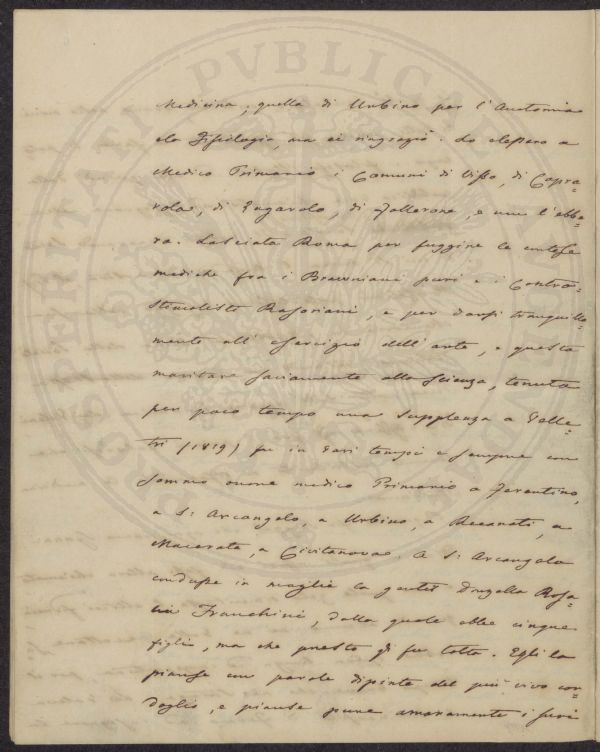 Medicina, quella di Urbino per l'Anatomia
e la Fisiologia, ma ei ringraziò. Lo elessero a
Medico Primario i Comuni di Visso, di Capra-
rola, di Zagarolo, di Fallerone, e non l'ebbe-
ro. Lasciata Roma per fuggire le contese
mediche fra i Browniani puri e i Contro-
stimolisti Rasoriani, e per darsi tranquilla-
mente all'esercizio dell'arte, e questa
maritare saviamente alla scienza, tenuta
per poco tempo una supplenza a Velle-
tri (1819) fu in vari tempi e sempre con
sommo onore medico Primario a Ferentino,
a S: Arcangelo, a Urbino, a Recanati, a
Macerata, a Civitanova. A S: Arcangelo
condusse in moglie la gentil Donzella Rosa-
Franchini, dalla quale ebbe cinque
figli, ma che presto gli fu tolta. Egli la
pianse con parole dipinte del più vivo cor-
doglio, e pianse pure amaramente i suoi
PROSPERITATI PVBLICAE